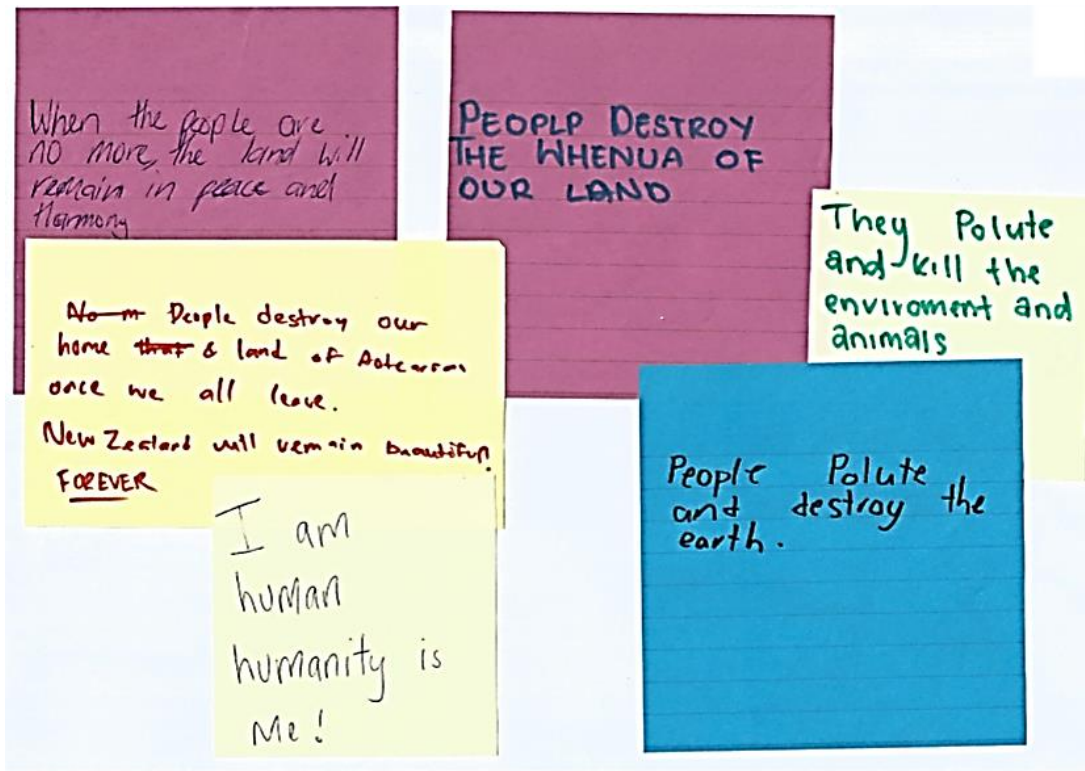 When the people are
no more, the land will
remain in peace and
Harmony
PEOPLP DESTROY
THE WHENUA OF
OUR LAND
They Polute
and kill the
enviroment and
animals
No m People destroy our
home that & land of Aotearoa
once we all leave.
New Zealand will remain beautiful.
FOREVER
People Polute
and destroy the
earth.
I am
human
humanity is
Me!